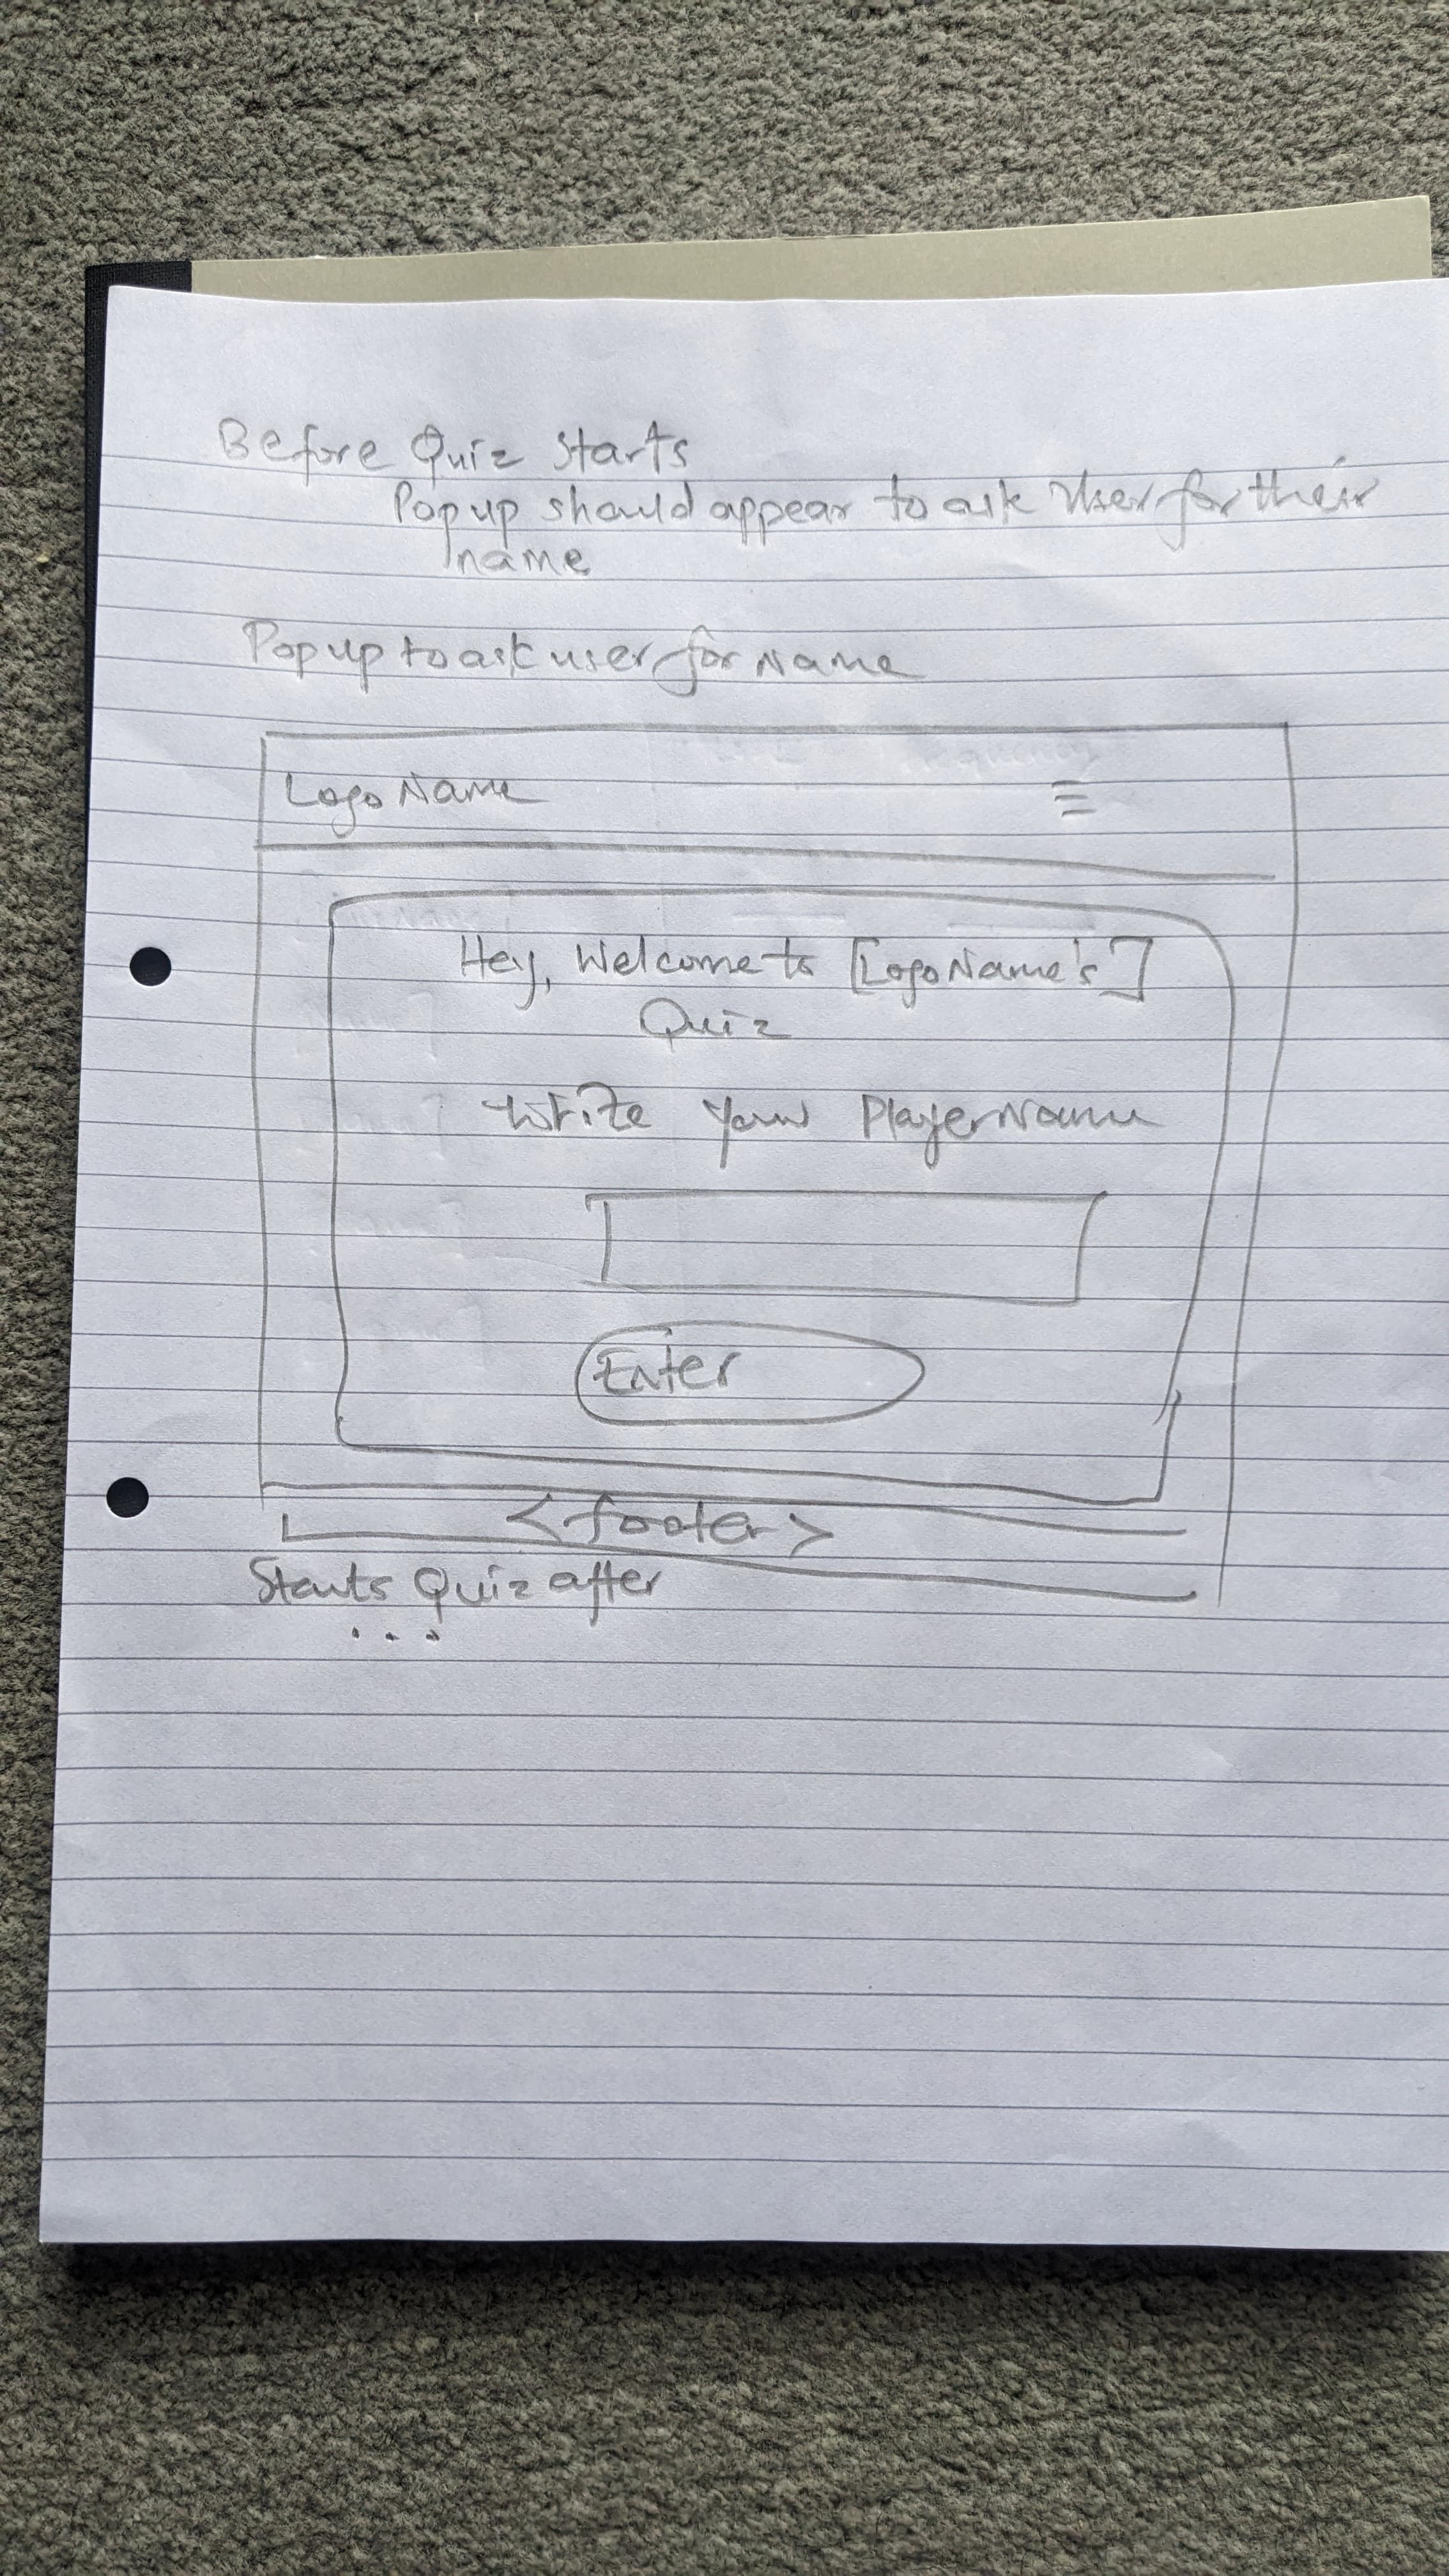 Before Quiz starts
Popup should appear to ask User for their
name
Popup to ask user for Name
Logo Name
Hey, Welcome to [Logo Name's]
Quiz
Write your PlayerName
Enter
<footer>
Starts Quiz after
...